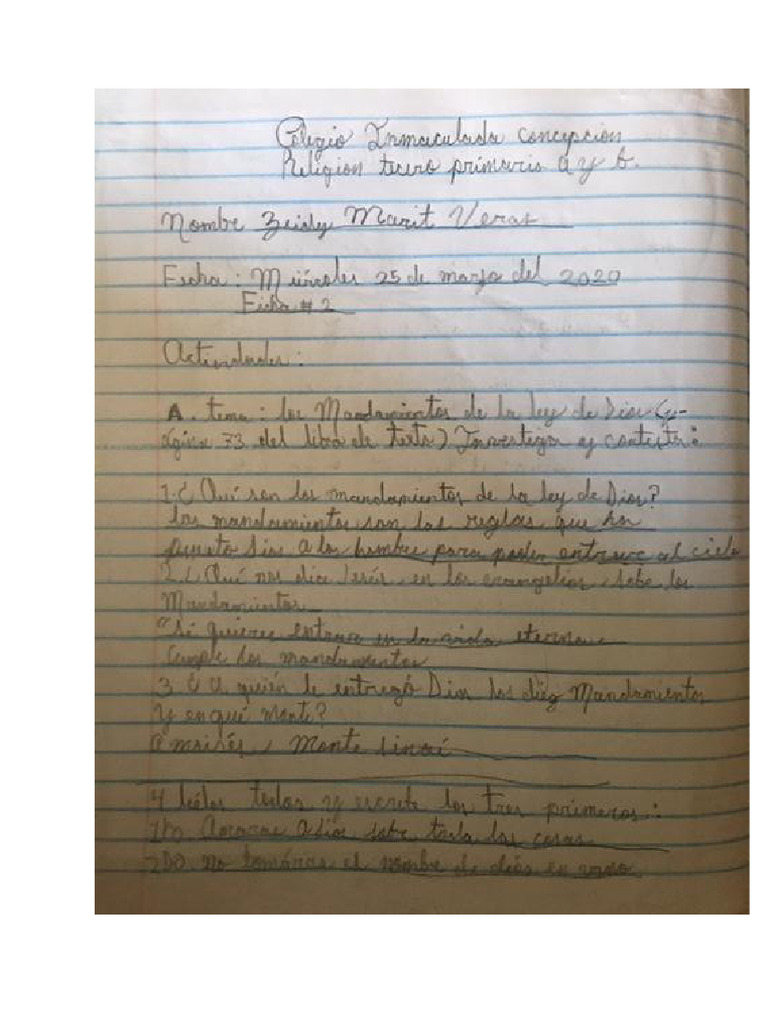 Colegio Inmaculada concepcion
Religion tecero primario a y b.
Nombre Zeidy Marit Veras
Fecha : Miércoles 25 de marzo del 2020
Ficha # 2
Actividades :
A. tema : los Mandamientos de la ley de Dios (p-
ágina 33 del libro de texto) Investiga y contesta :
1. ¿ Qué son los mandamientos de la ley de Dios?
los mandamientos son las reglas que
puesto Dios a los hombre para poder entrare al cielo
2. ¿ Qué nos dice Jesús, en los evangelios, sobe los
Mandamientos
"si quieres entrare en la vida eterna
cumple los mandamientos
3. ¿ A quién le entregó Dios los diez Mandamientos
y en qué monte?
A moisés, Monte sinaí
4 leélos todos y escribe los tres primeros :
1ro. Amaras a dios sobe toda las cosas
2do. no tomáras el nombre de diós en vano